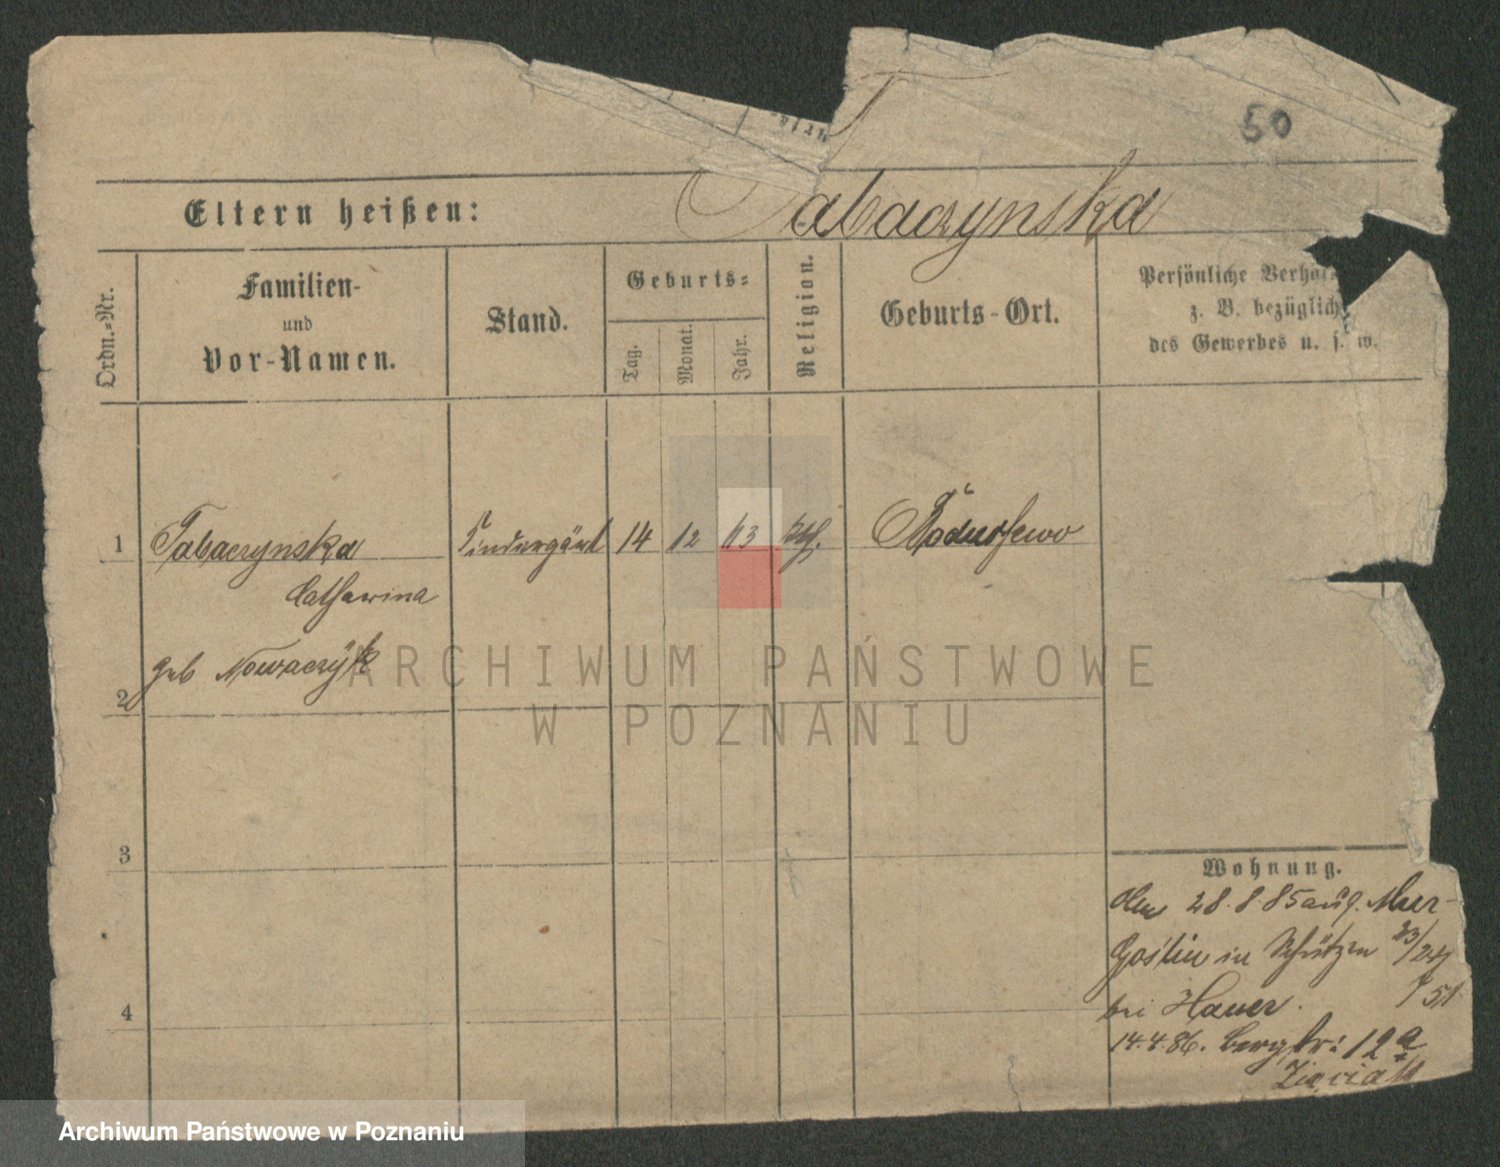 50
Eltern heißen:
Tabaczynska
Ordn.=Nr.
Familien-
und
Vor-Namen.
Stand.
Geburts=
Tag.
Monat.
Jahr.
Religion.
Geburts-Ort.
Persönliche
z. B. bezüglich
des Gewerbes u. s. w.
1 Tabaczynska 14 12 63 kth.
Catharina
geb Nowaczyk
2
3
4
Wohnung.
den 28.8.85 aus Mur-
Gostin in Schützen 23/24
bei Hauer. 51
14.4.86. Bergstr: 12a
ARCHIWUM PAŃSTWOWE
W POZNANIU
Archiwum Państwowe w Poznaniu